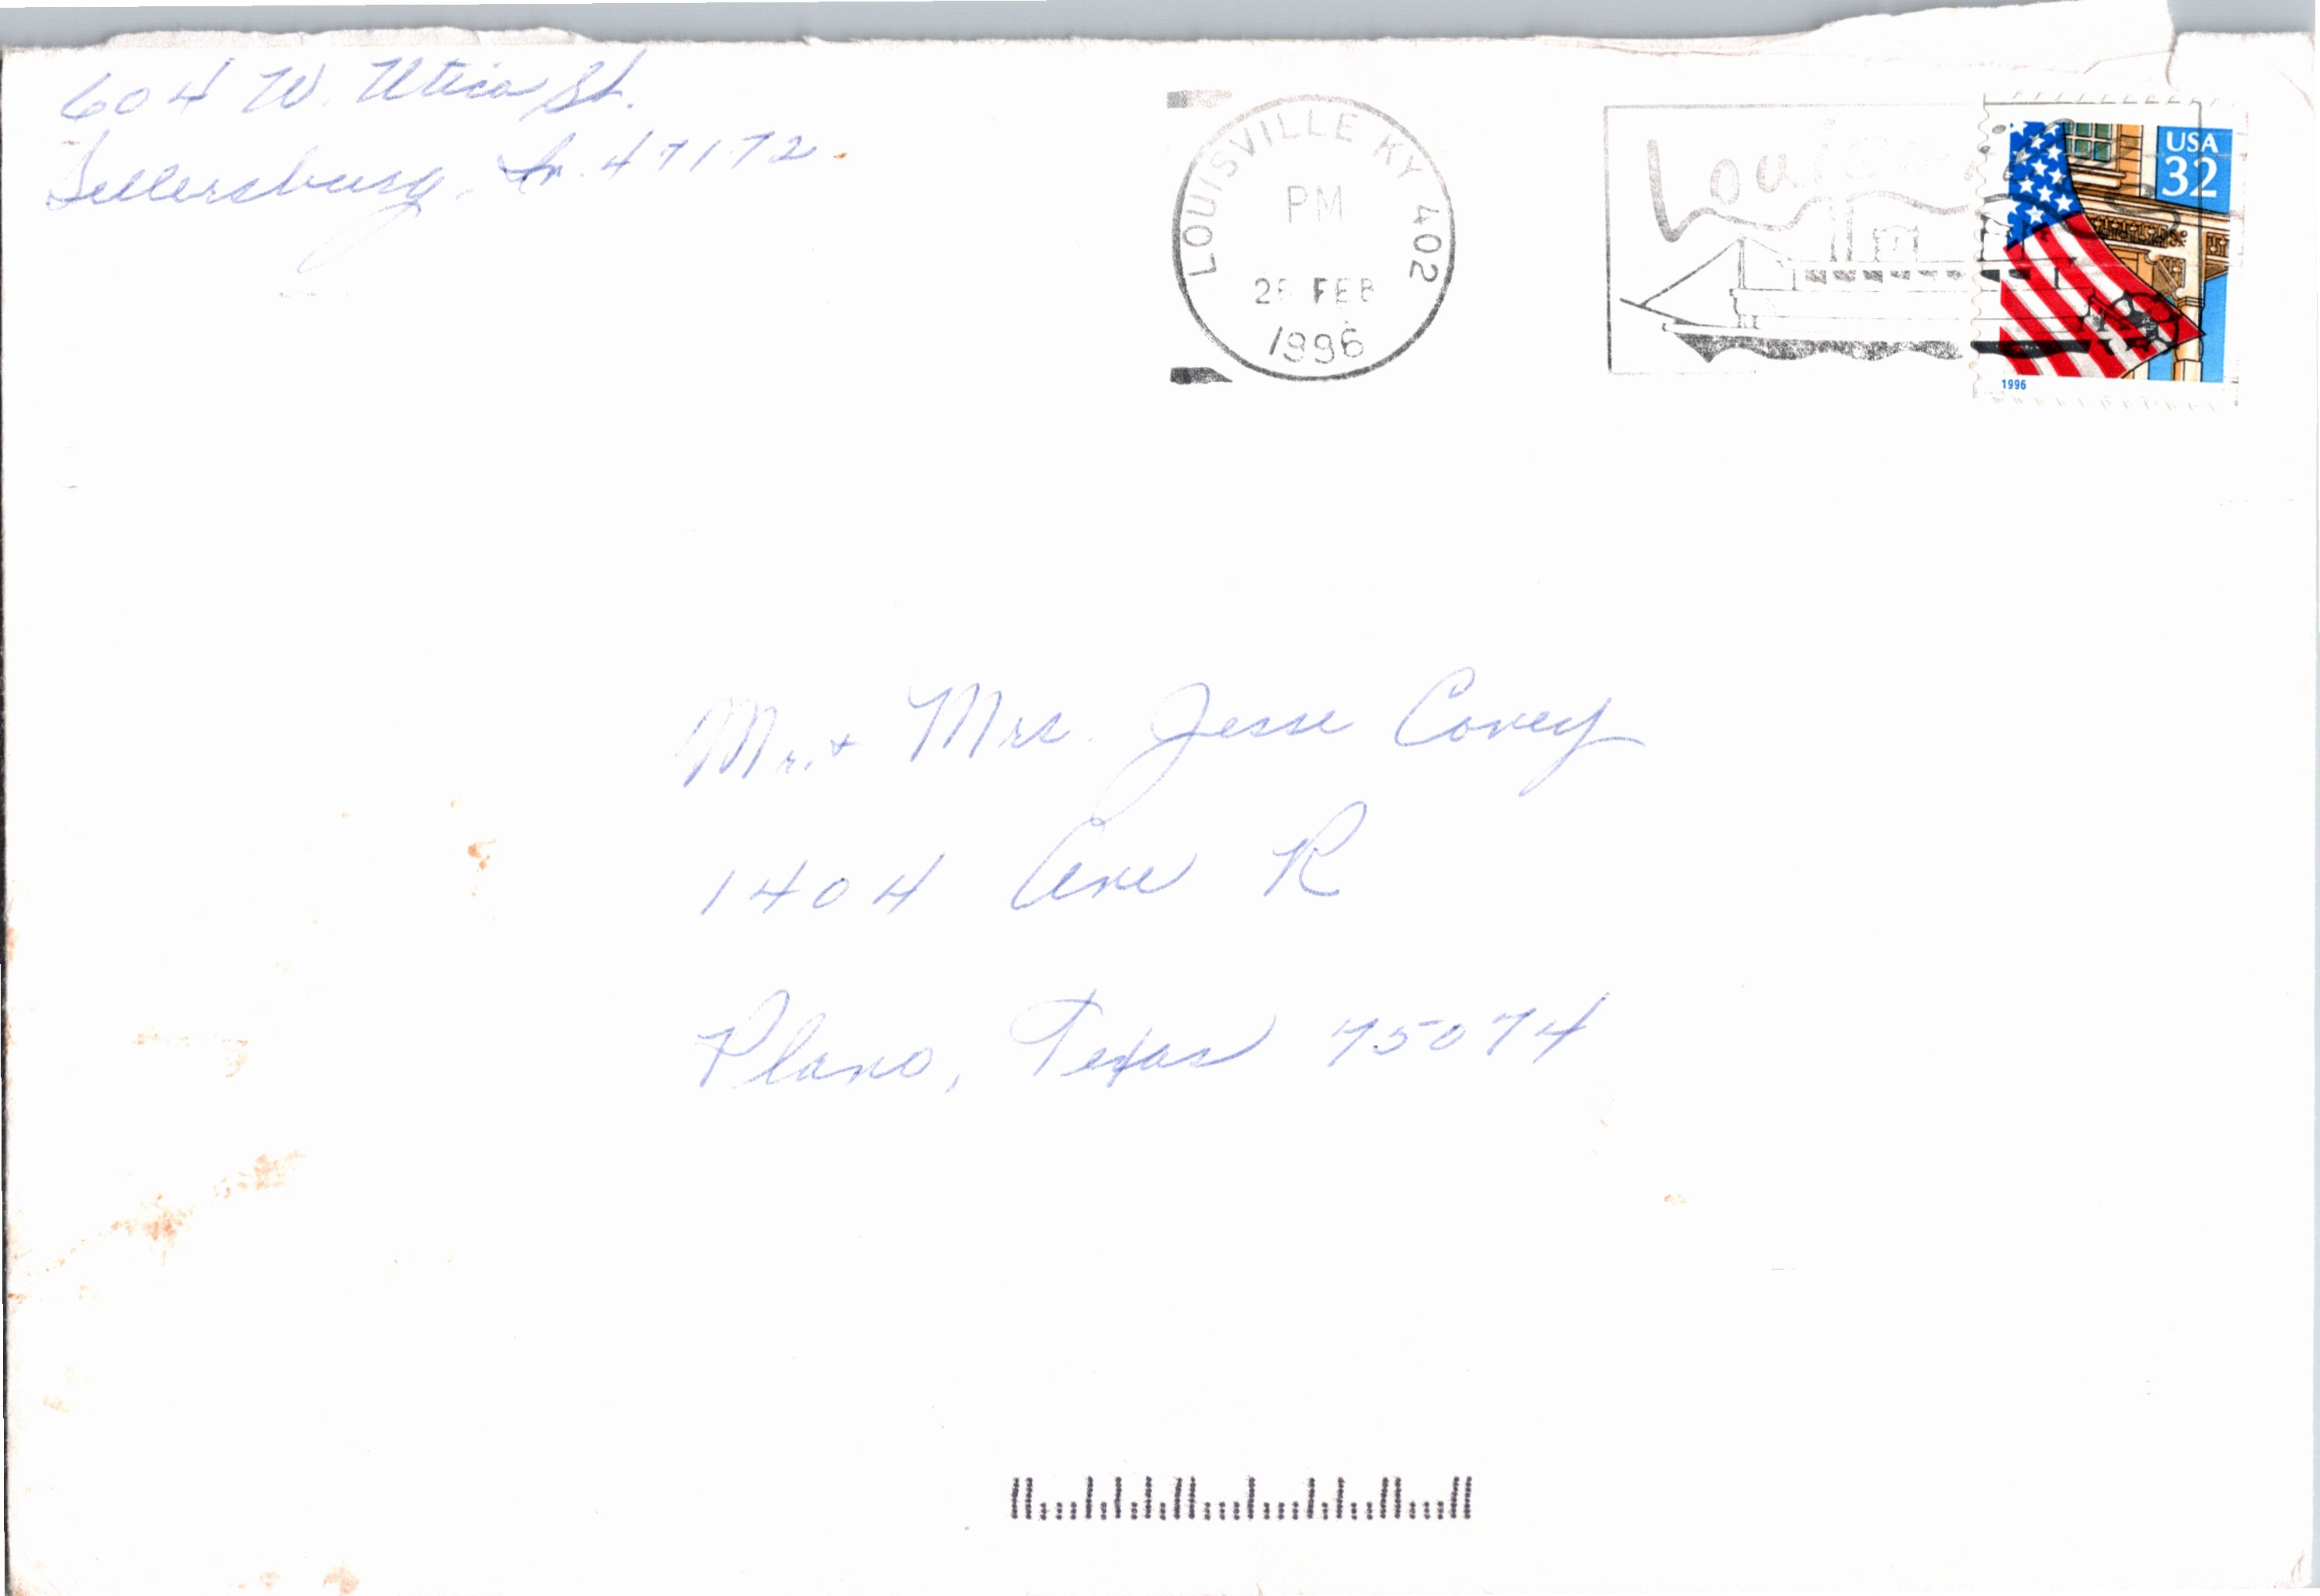 604 W. Utica St.
Sellersburg, In. 47172.
LOUISVILLE KY 402
PM
FEB
1996
USA
32
1996
Mr. + Mrs. Jesse Covey
1404 Ave R
Plano, Texas 75074